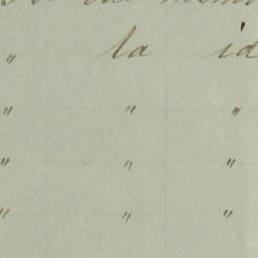 " la id
" " "
" " "
" " "